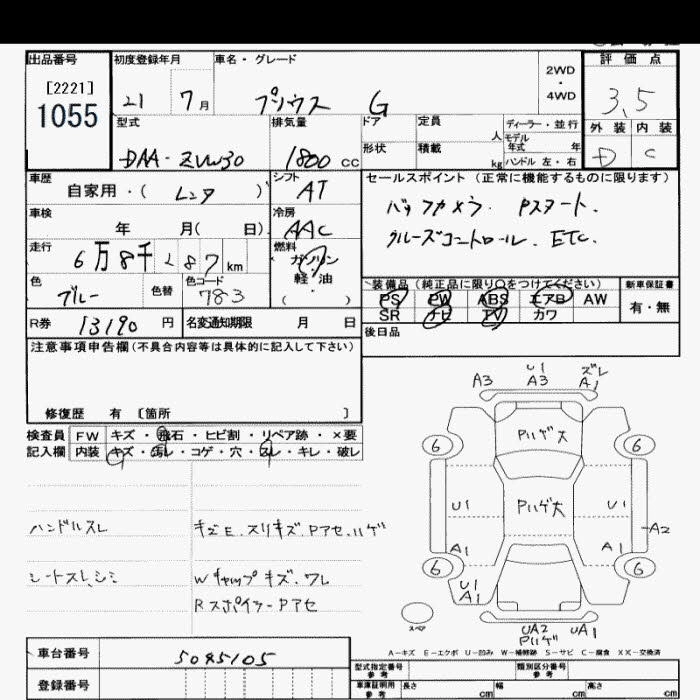 出品番号 初度登録年月 車名・グレード 2WD・4WD 評価点
[2221]
1055 21 7月 プリウス G 3.5
型式 排気量 ドア 定員 人 ディーラー・並行 外装 内装
モデル年式 年
DAA-ZVW30 1800cc 形状 積載 kg ハンドル 左・右 D C
車歴 シフト セールスポイント (正常に機能するものに限ります)
自家用・( レンタ ) AT バックカメラ. Pスタート.
車検 冷房
年 月( 日) AAC クルーズコントロール. ETC.
走行 燃料
6万8千287km ガソリン
軽・油
( )
装備品 (純正品に限り○をつけてください) 新車保証書
色 色替 色コード PS PW ABS エアB AW 有・無
ブルー 783 SR ナビ TV カワ
R券 13190円 名変通知期限 月 日 後日品
注意事項申告欄(不具合内容等は具体的に記入して下さい)
修復歴 有 〔箇所 〕
検査員 FW キズ・飛石・ヒビ割・リペア跡・×要
記入欄 内装 キズ・汚レ・コゲ・穴・スレ・キレ・破レ
ハンドルスレ キズE.スリキズ.Pアセ.ハゲ
シートスレ,シミ Wキャップキズ.ワレ
Rスポイラ-Pアセ
A3 U1 A3 ズレ A1
Pハゲ大
6 6
U1 Pハゲ大 U1
A2
A1 A1
6 6
U1
A1
スペア
UA2 UA1
Pハゲ
A-キズ E-エクボ U-凹み W-補修跡 S-サビ C-腐食 XX-交換済
車台番号 5085105
登録番号
型式指定番号 参考 類別区分番号 参考
車庫証明用 参考 長さ cm 幅 cm 高さ cm